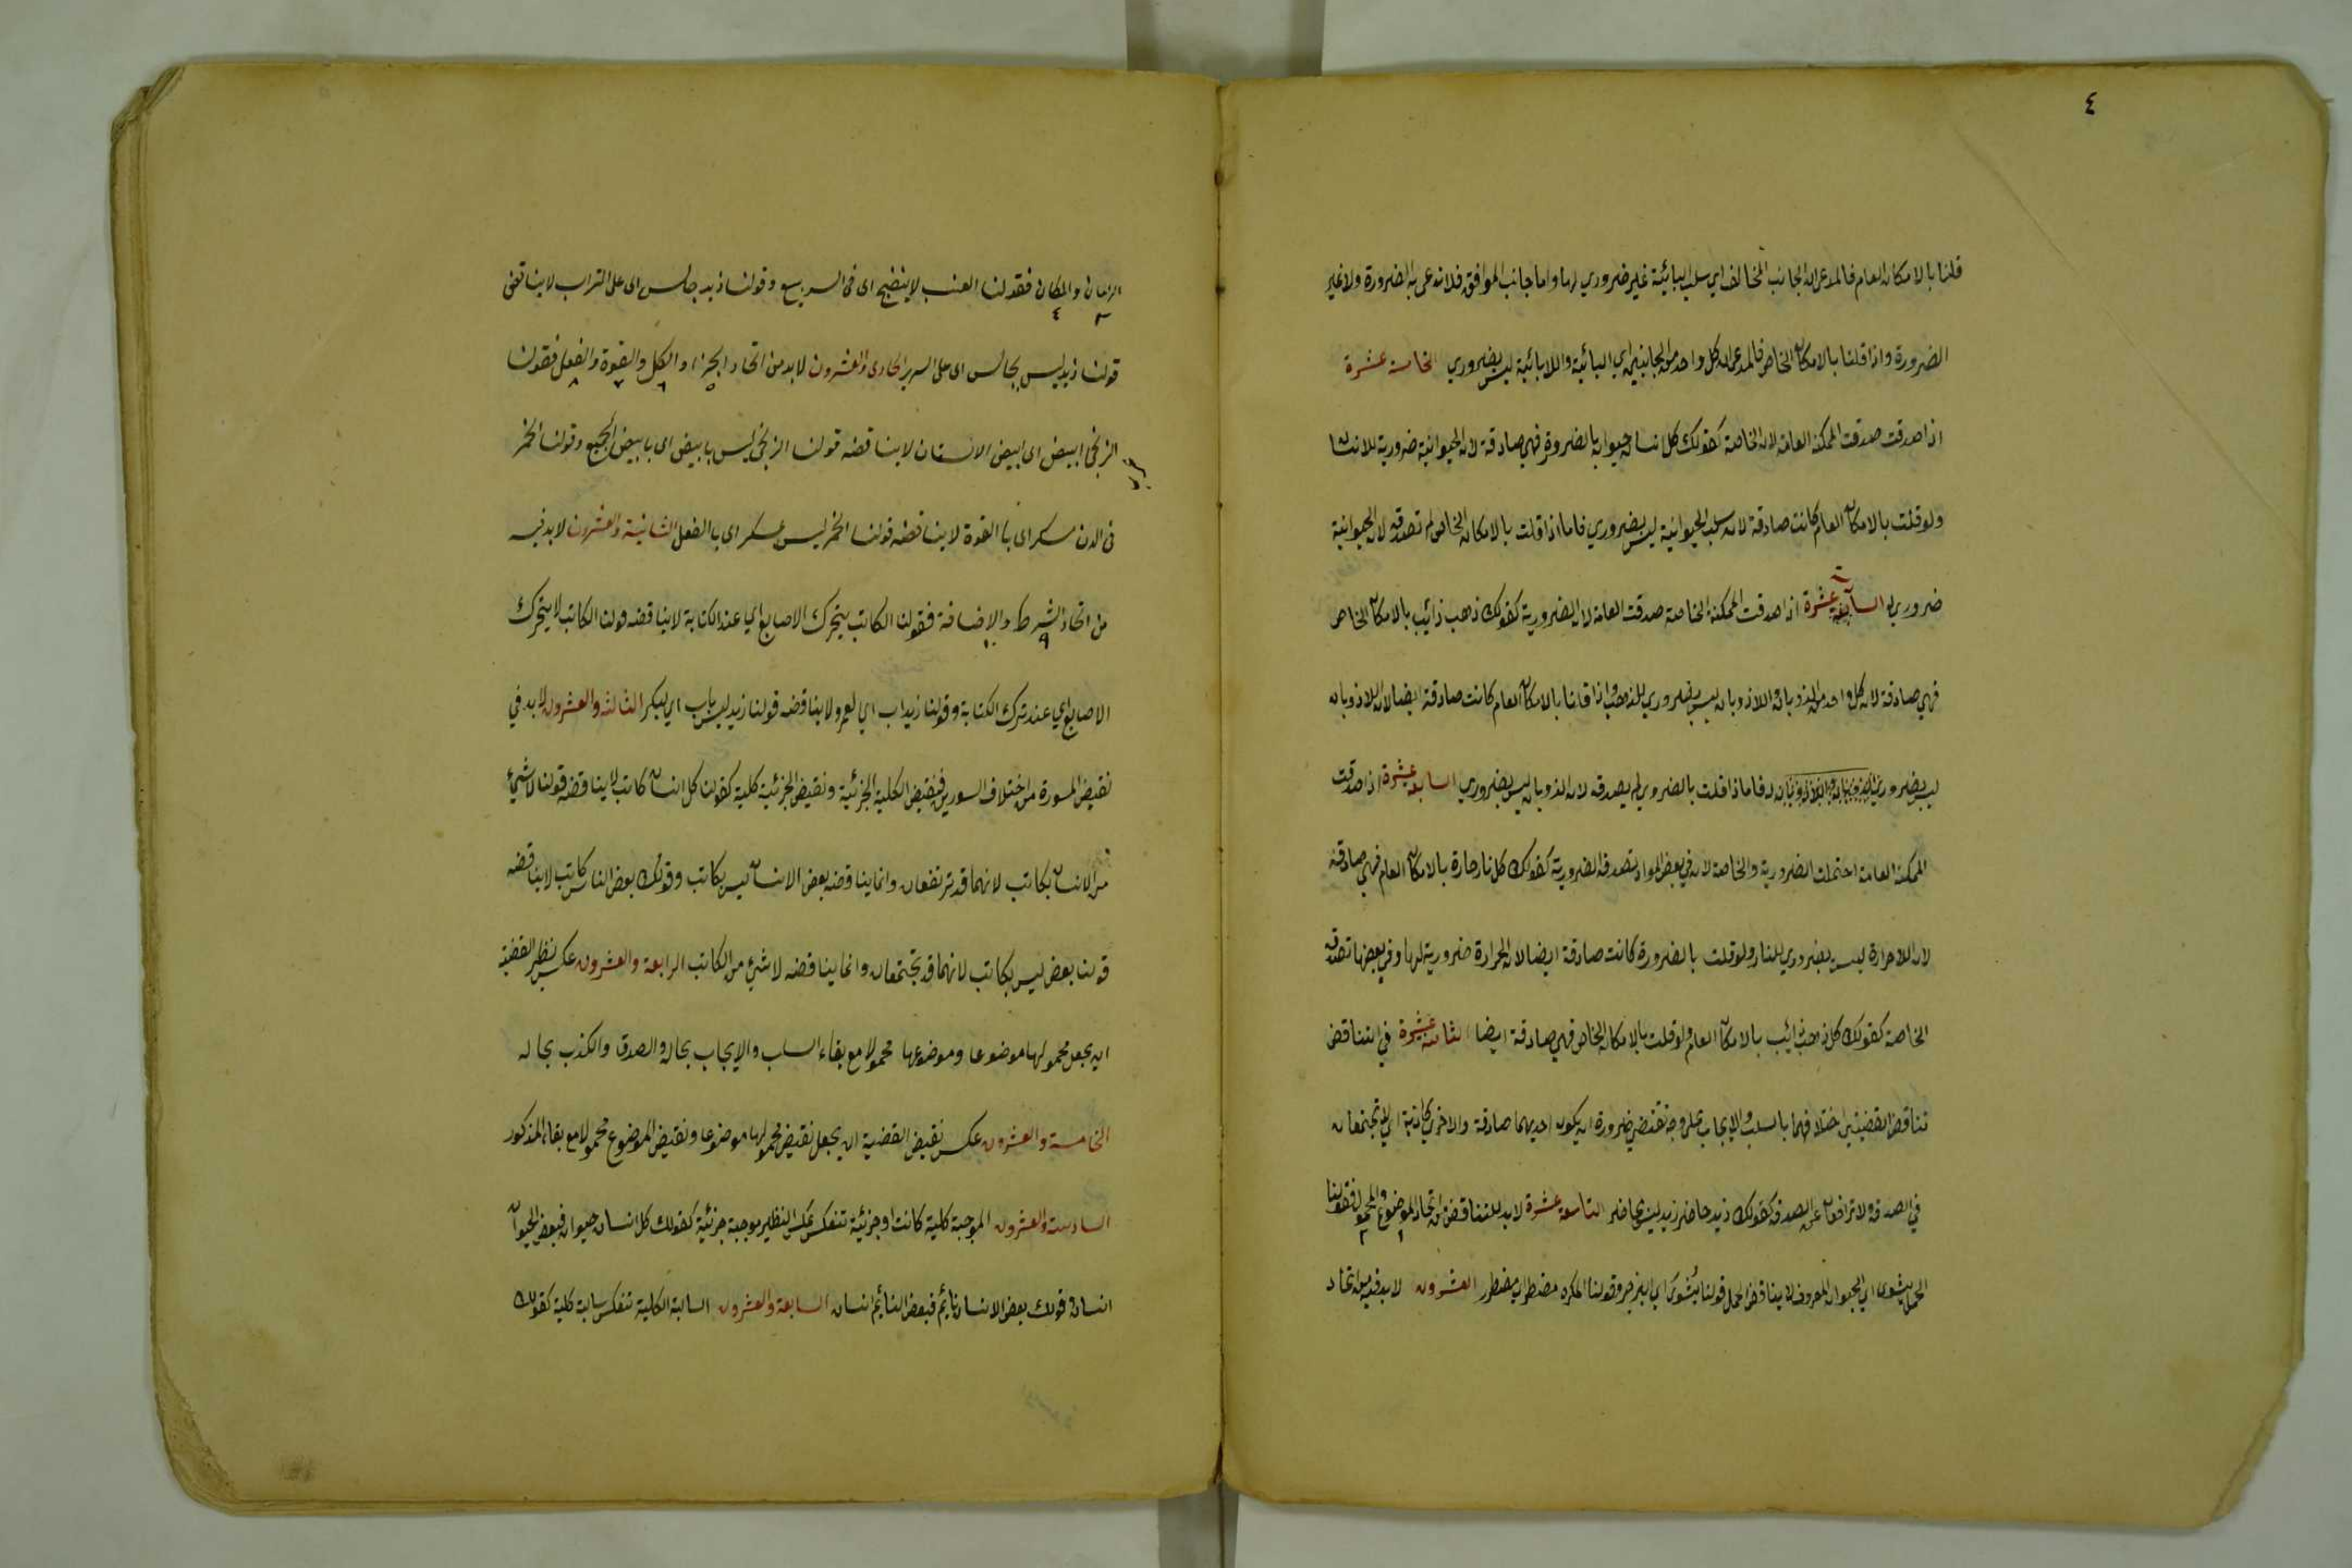 ٤
قلنا بالامكان العام فالمدعى ان الجانب المخالف اي سلب البائية غير ضروري لها واما جانب الموافق فلا تدعى به الضرورة ولا غير
الضرورة واذا قلنا بالامكان الخاص فالمدعى ان كل واحد من الجانبين اي البائية واللابائية ليس بضروري الخامسة عشرة
اذا صدقت صدقت الممكنة العامة لا الخاصة كقولك كل انسان حيوان بالضرورة فهي صادقة لان الحيوانية ضرورية للانسان
ولو قلت بالامكان العام كانت صادقة لان سلب الحيوانية ليس بضروري فاما اذا قلت بالامكان الخاص لم تصدق لان الحيوانية
ضروري له السادسة عشرة اذا صدقت الممكنة الخاصة صدقت العامة لا الضرورية كقولك ذهب ذائب بالامكان الخاص
فهي صادقة لان كل واحد من الذوبان واللاذوبان ليس بضروري للذهب واذا قلنا بالامكان العام كانت صادقة ايضا لان اللاذوبان
ليس بضروري له فاما اذا قلت بالضروري لم يصدق لان الذوبان ليس بضروري السابعة عشرة اذا صدقت
الممكنة العامة احتملت الضرورية والخاصة لان في بعض المواد تصدق الضرورية كقولك كل نار حارة بالامكان العام فهي صادقة
لان اللاحرارة ليس بضروري للنار ولو قلت بالضرورة كانت صادقة ايضا لان الحرارة ضرورية لها وفي بعضها تصدق
الخاصة كقولك كل ذهب ذائب بالامكان العام ولو قلت بالامكان الخاص فهي صادقة ايضا الثامنة عشرة في التناقض
تناقض القضيتين اختلافهما بالسلب والايجاب على وجه تقتضي ضرورة ان يكون احديهما صادقة والاخرى كاذبة اي لا تجتمعان
في الصدق ولا ترافعان عن الصدق كقولك زيد حاضر زيد ليس بحاضر التاسعة عشرة لابد للتناقض من اتحاد الموضوع والمحمول فقولنا
الحمل يشوى اي الحيوان المعروف لا يناقض الحمل قولنا يشوى اي البرج وقولنا المكره مضطر اي مفطر العشرون لابد فيه من اتحاد
الزمان والمكان فقولنا العنب لا ينضج اى فى الربيع وقولنا زيد جالس اى على التراب لا يناقض
قولنا زيد ليس بجالس اى على السرير الحادى والعشرون لابد من اتحاد الجزء والكل والقوة والفعل فقولنا
الزنجى ابيض اى ابيض الاسنان لا يناقضه قولنا الزنجى ليس بابيض اى بابيض الجميع وقولنا الخمر
فى الدن مسكر اى بالقوة لا يناقضه قولنا الخمر ليس بمسكر اى بالفعل الثانية والعشرون لابد فيه
من اتحاد الشرط والاضافة فقولنا الكاتب يتحرك الاصابع اي عند الكتابة لا يناقضه قولنا الكاتب لا يتحرك
الاصابع اي عند ترك الكتابة وقولنا زيد اب اي لعمرو لا يناقضه قولنا زيد ليس باب اي لبكر الثالثة والعشرون لابد في
نقيض المسورة من اختلاف السورين فنقيض الكلية الجزئية ونقيض الجزئية كلية كقولنا كل انسان كاتب لا يناقضه قولنا لا شيء
من الانسان بكاتب لانهما قد ترتفعان وانما يناقضه بعض الانسان ليس بكاتب وقولك بعض الناس كاتب لا يناقضه
قولنا بعض ليس بكاتب لانهما قد يجتمعان وانما يناقضه لا شئ من الكاتب الرابعة والعشرون عكس نظير القضية
ان يجعل محمولها موضوعا وموضوعها محمولا مع بقاء السلب والايجاب بحاله والصدق والكذب بحاله
الخامسة والعشرون عكس نقيض القضية ان يجعل نقيض محمولها موضوعا ونقيض الموضوع محمولا مع بقاء المذكور
السادسة والعشرون الموجبة كلية كانت او جزئية تنعكس عكس النظير موجبة جزئية كقولك كل انسان حيوان فبعض الحيوان
انسان وقولك بعض الانسان نائم فبعض النائم انسان السابعة والعشرون السالبة الكلية تنعكس سالبة كلية كقولك